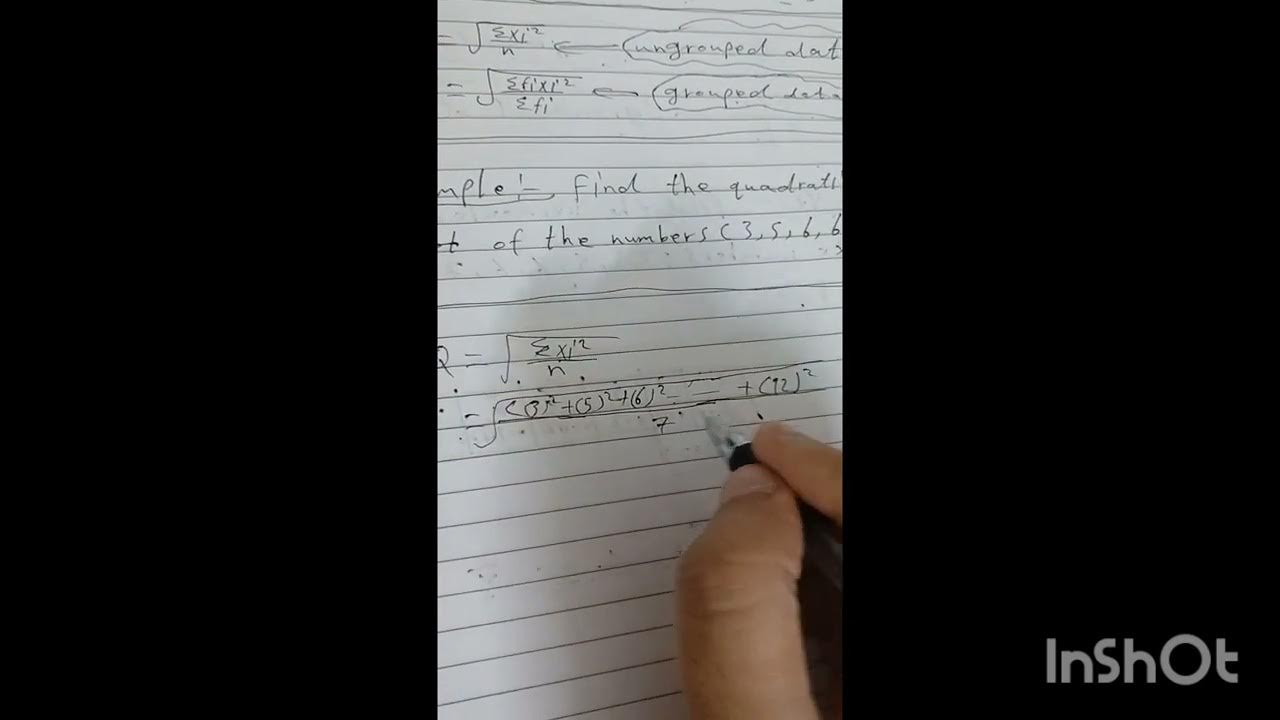 = √Σxi²/n ← (ungrouped dat
= √Σfixi²/Σfi ← (grouped data
mple:- Find the quadrati
t of the numbers (3,5,6,6
Q = √Σxi²/n
= √(3)²+(5)²+(6)²-- +(12)²/7
InShOt